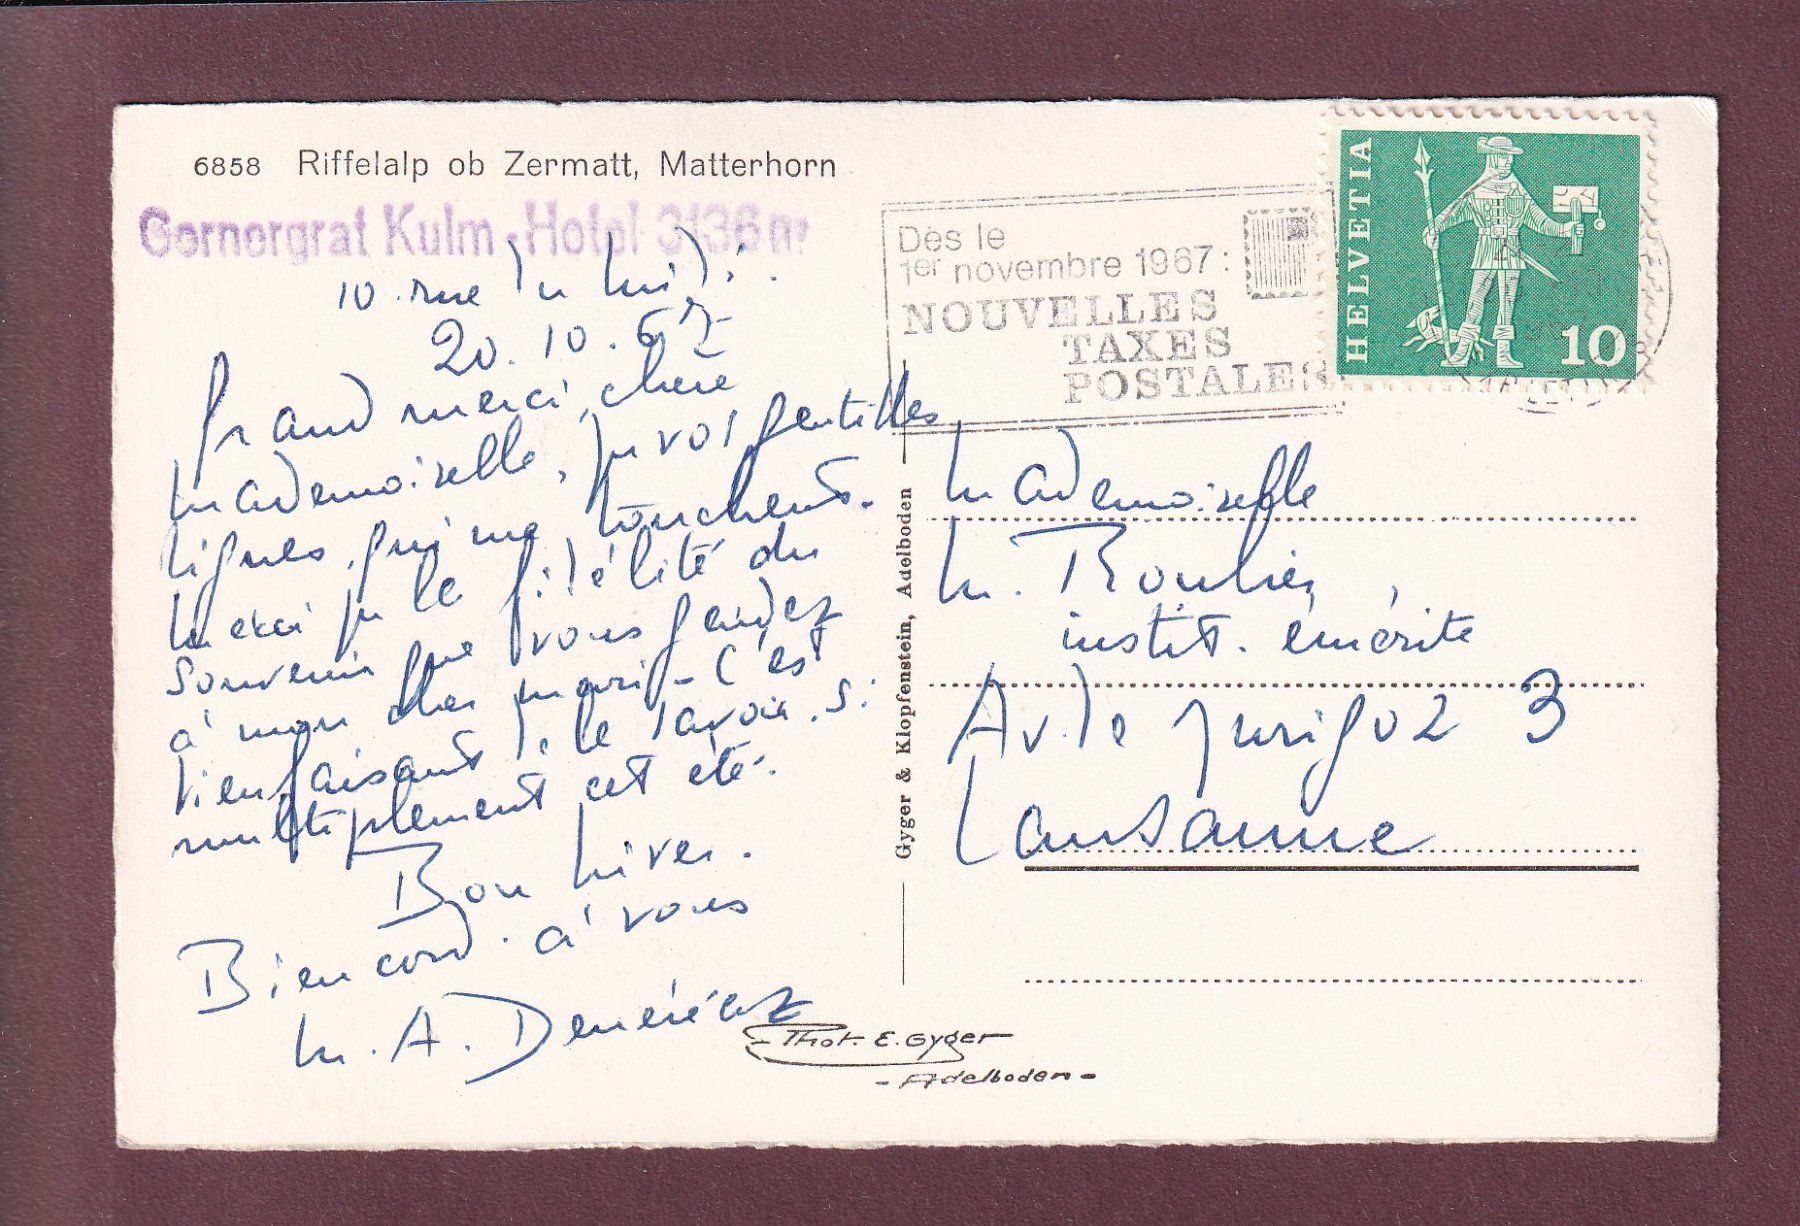 6858 Riffelalp ob Zermatt, Matterhorn
Gornergrat Kulm-Hotel 3136 m
10. rue du Midi.
20.10.67
Grand merci, chère
Mademoiselle, pr vos gentilles
lignes, qui me touchent.
Merci pr la fidélité du
souvenir que vous gardez
à mon cher mari - C'est
bienfaisant de le savoir. Si
multiplement cet été.
Bon hiver.
Bien cord. à vous
M. A. Denéréaz
Phot. E. Gyger
- Adelboden -
Gyger & Klopfenstein, Adelboden
Dès le
1er novembre 1967:
NOUVELLES
TAXES
POSTALES
HELVETIA
10
Mademoiselle
M. Roulier,
instit. émérite
Av. de Jurigoz 3
Lausanne